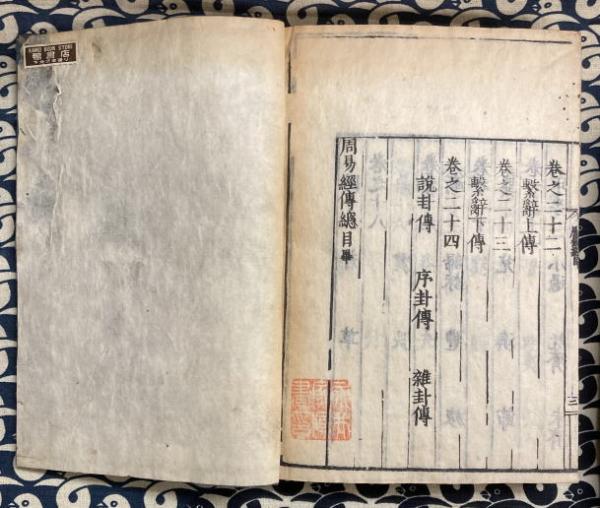 卷之二十二
繫辭上傳
卷之二十三
繫辭下傳
卷之二十四
說卦傳 序卦傳 雜卦傳
周易經傳總目畢
三